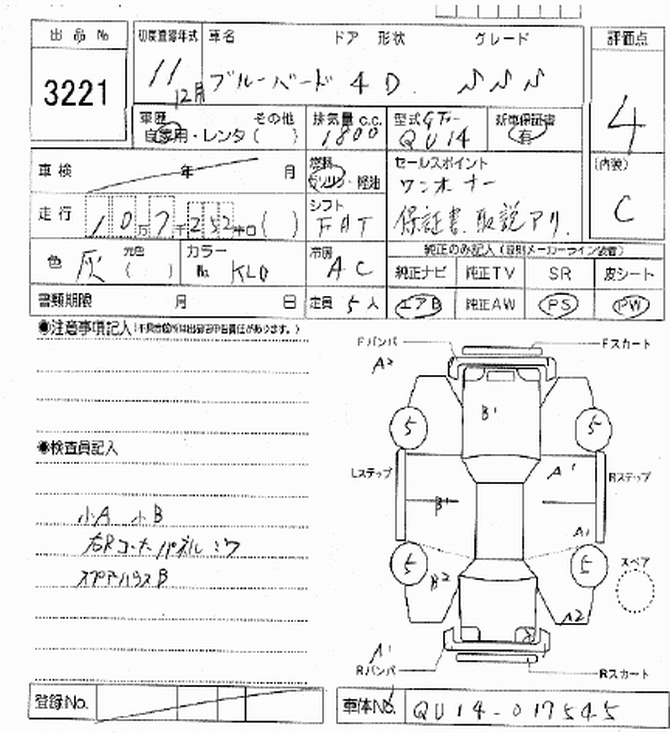 出品No 初度登録年式 車名 ドア 形状 グレード 評価点
3221 11 12月 ブルーバード 4 D. 4
車歴 その他 排気量 c.c. 型式 新車保証書
自家用・レンタ ( ) 1800 QU14 有
車検 年 月 燃料 ガソリン・軽油 セールスポイント (内装)
ワンオーナー C
走行 10万7千252キロ ( ) シフト FAT 保証書、取説アリ.
色 灰 元色 ( ) カラー No. KLO 冷房 AC 純正のみ記入(原則メーカーライン装着)
純正ナビ 純正TV SR 皮シート
書類期限 月 日 定員 5人 エアB 純正AW PS PW
◉注意事項記入
Fバンパ Fスカート
A2
B1
5 5
◉検査員記入
Lステップ A1 Rステップ
B1
小A 小B
右Rコーナーパネルミワ A1
5 5 スペア
スペアハウスB B2
A2
A1
Rバンパ Rスカート
登録No. 車体No. QU14-017545